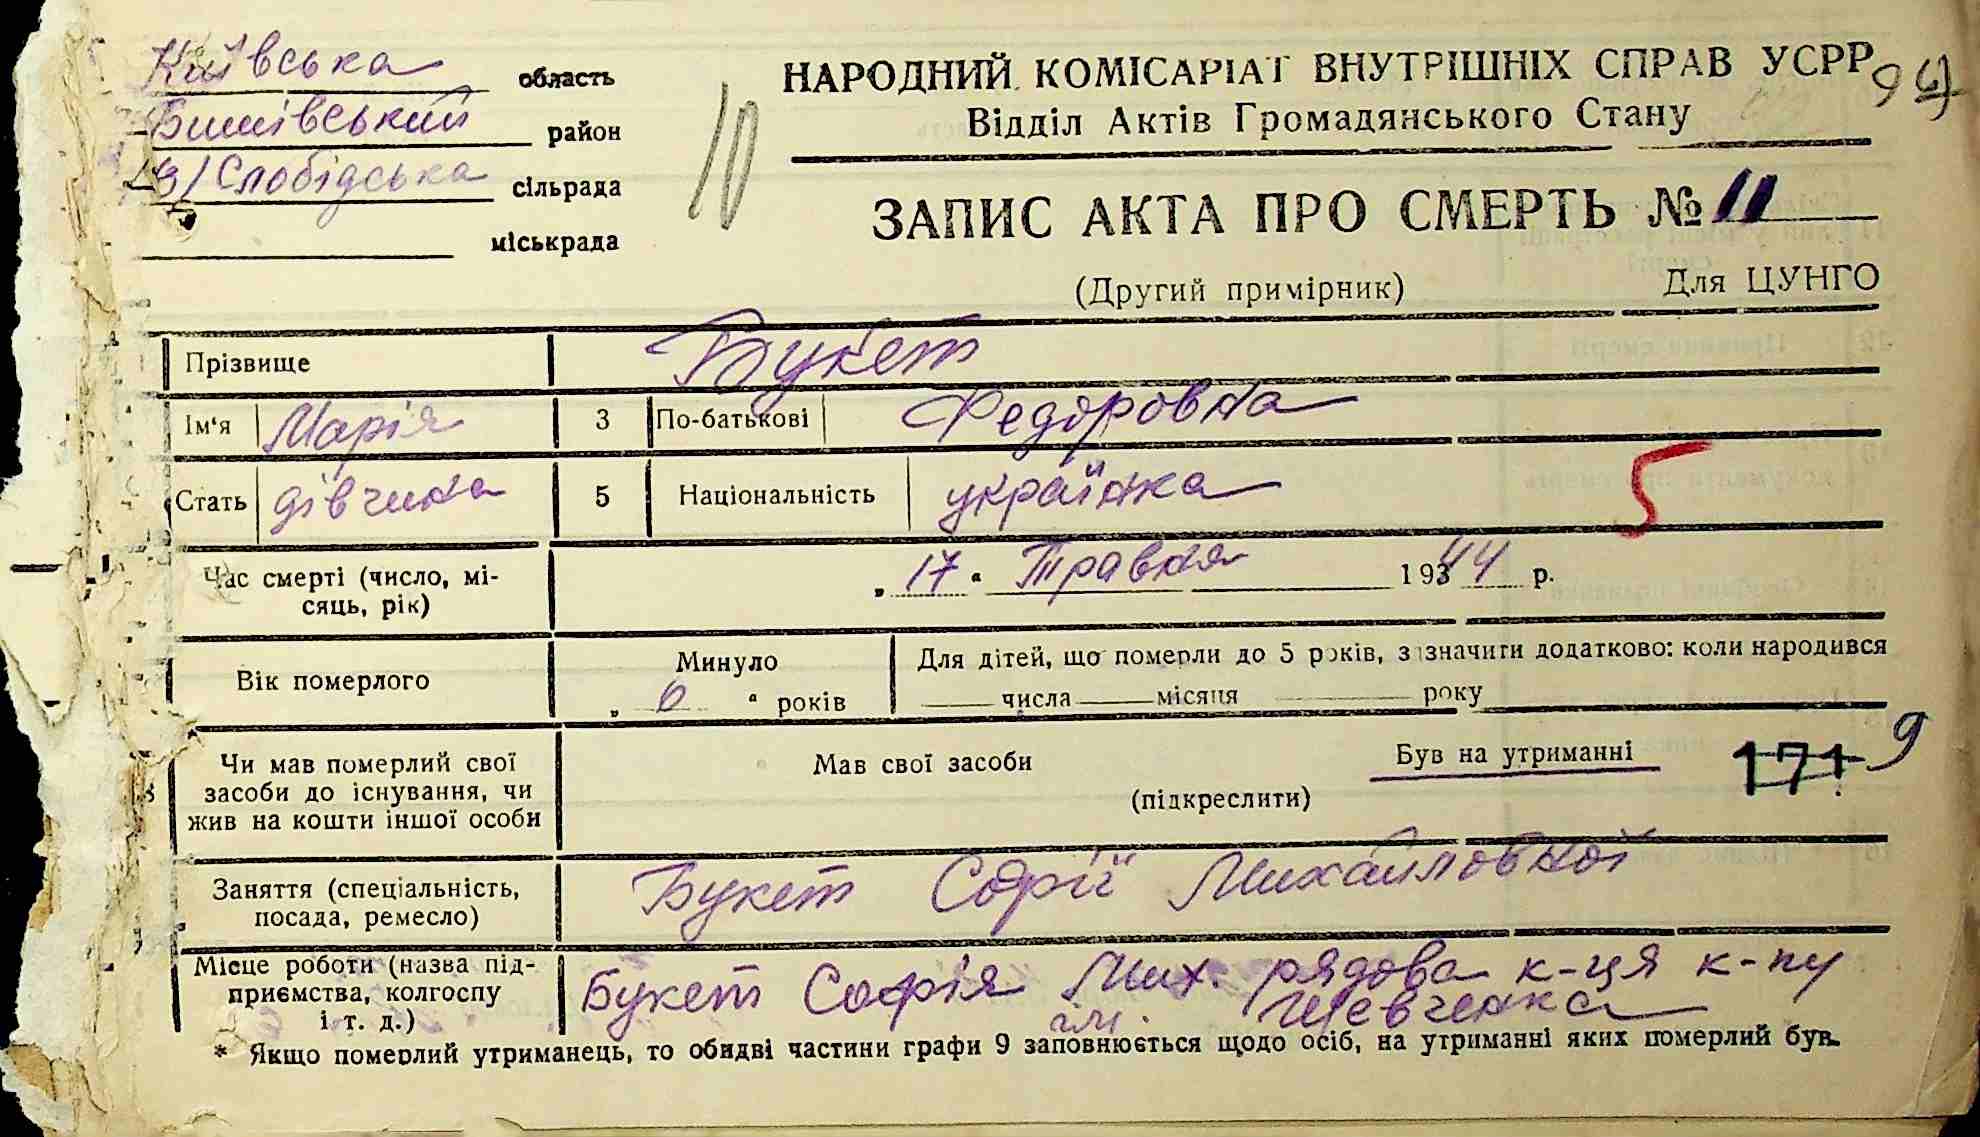 Київська область
Бишівський район
Слобідська сільрада
міськрада
10
НАРОДНИЙ КОМІСАРІАТ ВНУТРІШНІХ СПРАВ УСРР
Відділ Актів Громадянського Стану
ЗАПИС АКТА ПРО СМЕРТЬ № 11
(Другий примірник) Для ЦУНГО
Прізвище Букет
Ім'я Марія 3 По-батькові Федоровна
Стать дівчина 5 Національність українка
5
Час смерті (число, мі-
сяць, рік)
„17" Травня 1944 р.
Вік померлого
Минуло
„6" років
Для дітей, що померли до 5 років, зазначити додатково: коли народився
— числа — місяця — року
Чи мав померлий свої
засоби до існування, чи
жив на кошти іншої особи
Мав свої засоби Був на утриманні
(підкреслити)
171 9
Заняття (спеціальність,
посада, ремесло)
Букет Софії Михайловної
Місце роботи (назва під-
приємства, колгоспу
і т. д.)
Букет Софія Мих. рядова к-ця к-пу
ім. Шевченка
* Якщо померлий утриманець, то обидві частини графи 9 заповнюється щодо осіб, на утриманні яких померлий був.